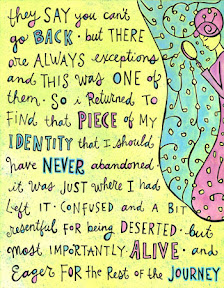 they SAY you can't
go BACK · but THERE
are ALWAYS exceptions
and THIS was ONE of
them. So i Returned TO
find that PIECE of MY
IDENTITY that I should
have NEVER abandoned
it was JUST where I had
left it · CONFUSED and A bit
resentful FOR being DESERTED · but
most importantly ALIVE · and
Eager FOR the Rest of the JOURNEY